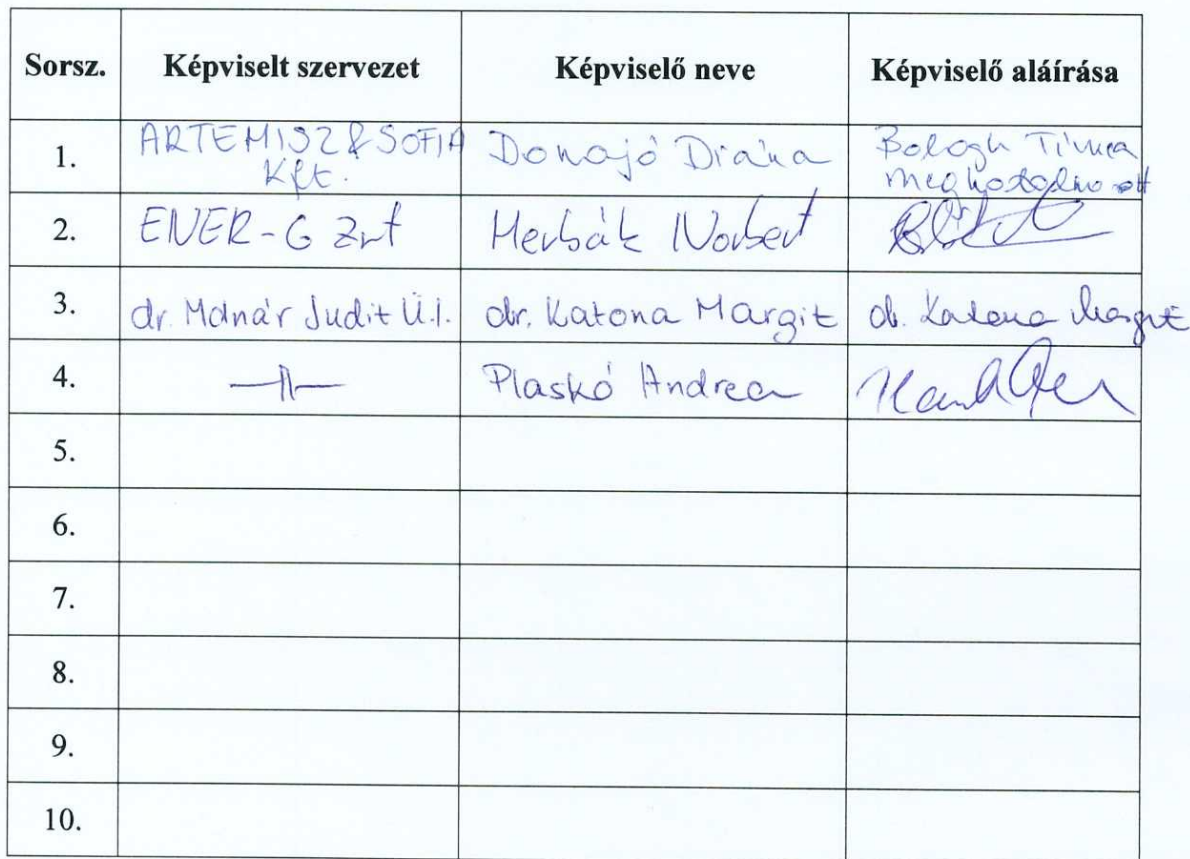 Sorsz. Képviselt szervezet Képviselő neve Képviselő aláírása
1. ARTEMISZ & SOFIA Kft. Donajó Diána Balogh Tímea meghatalmazott
2. ENER-G Zrt Herbák Norbert
3. dr. Molnár Judit Ü.I. dr. Katona Margit dr. Katona Margit
4. —||— Plaskó Andrea
5.
6.
7.
8.
9.
10.